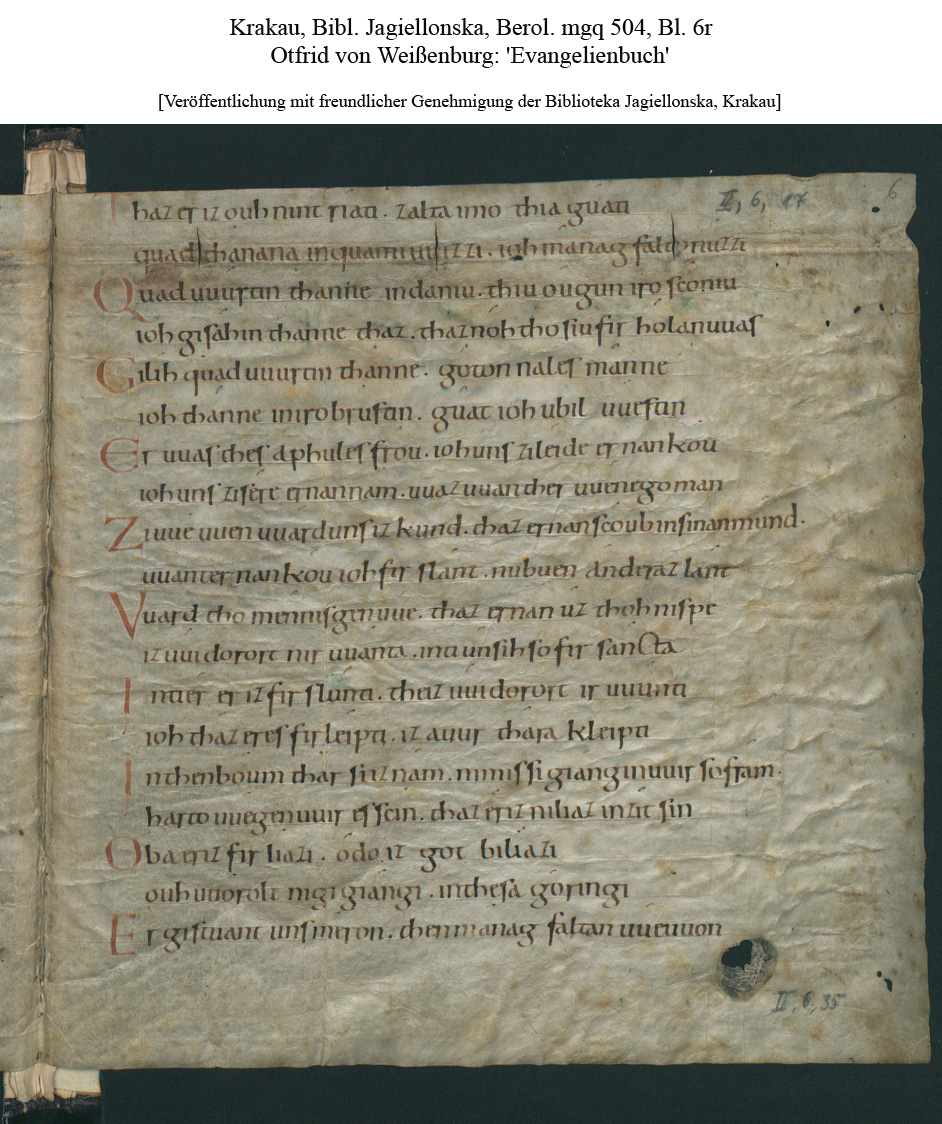 Krakau, Bibl. Jagiellonska, Berol. mgq 504, Bl. 6r
Otfrid von Weißenburg: 'Evangelienbuch'
[Veröffentlichung mit freundlicher Genehmigung der Biblioteka Jagiellonska, Krakau]
II, 6, 17
6
thaz er iz ouh firs. zalta imo thia guati
quad thanana in quami uuizzi. ioh manag falto nuzzi
Quad uuurtin thanne indaniu. thiu ougun iro sconiu
ioh gisahin thanne thaz. thaz noh tho siu fir holan uuas
Gilih quad uuurtin thanne. goton nales manne
ioh thanne in iro brustin. guat ioh ubil uuestin
Er uuas thes aphules frou. ioh uns zi leide er nan kou
ioh uns zi sere er nan nam. uuaz uuan ther uuenego man
Ziuue uuen uuard uns iz kund. thaz er nan scoub in sinan mund.
uuanter nan kou ioh fir slant. nu buen anderaz lant
Vuard tho mennisgen uue. thaz er nan uz thoh ni spe
iz uuidorort nir uuanta. inti unsih so fir sancta
Inti er er iz fir slunti. theiz uuidorort ir uuunti
ioh thaz er es fir leipti. iz auur thara kleipti
In then boum thar si iz nam. ni missigiangin uuir so fram.
harto uuegen uuir es scin. thaz er iz ni liaz in zit sin
Oba er iz fir liazi. odo iz got biliazi
ouh uuorolt ni gigiangi. in thesa goringi
Er gistuant unsih meron. then managfaltan uueuuon
II, 6, 35